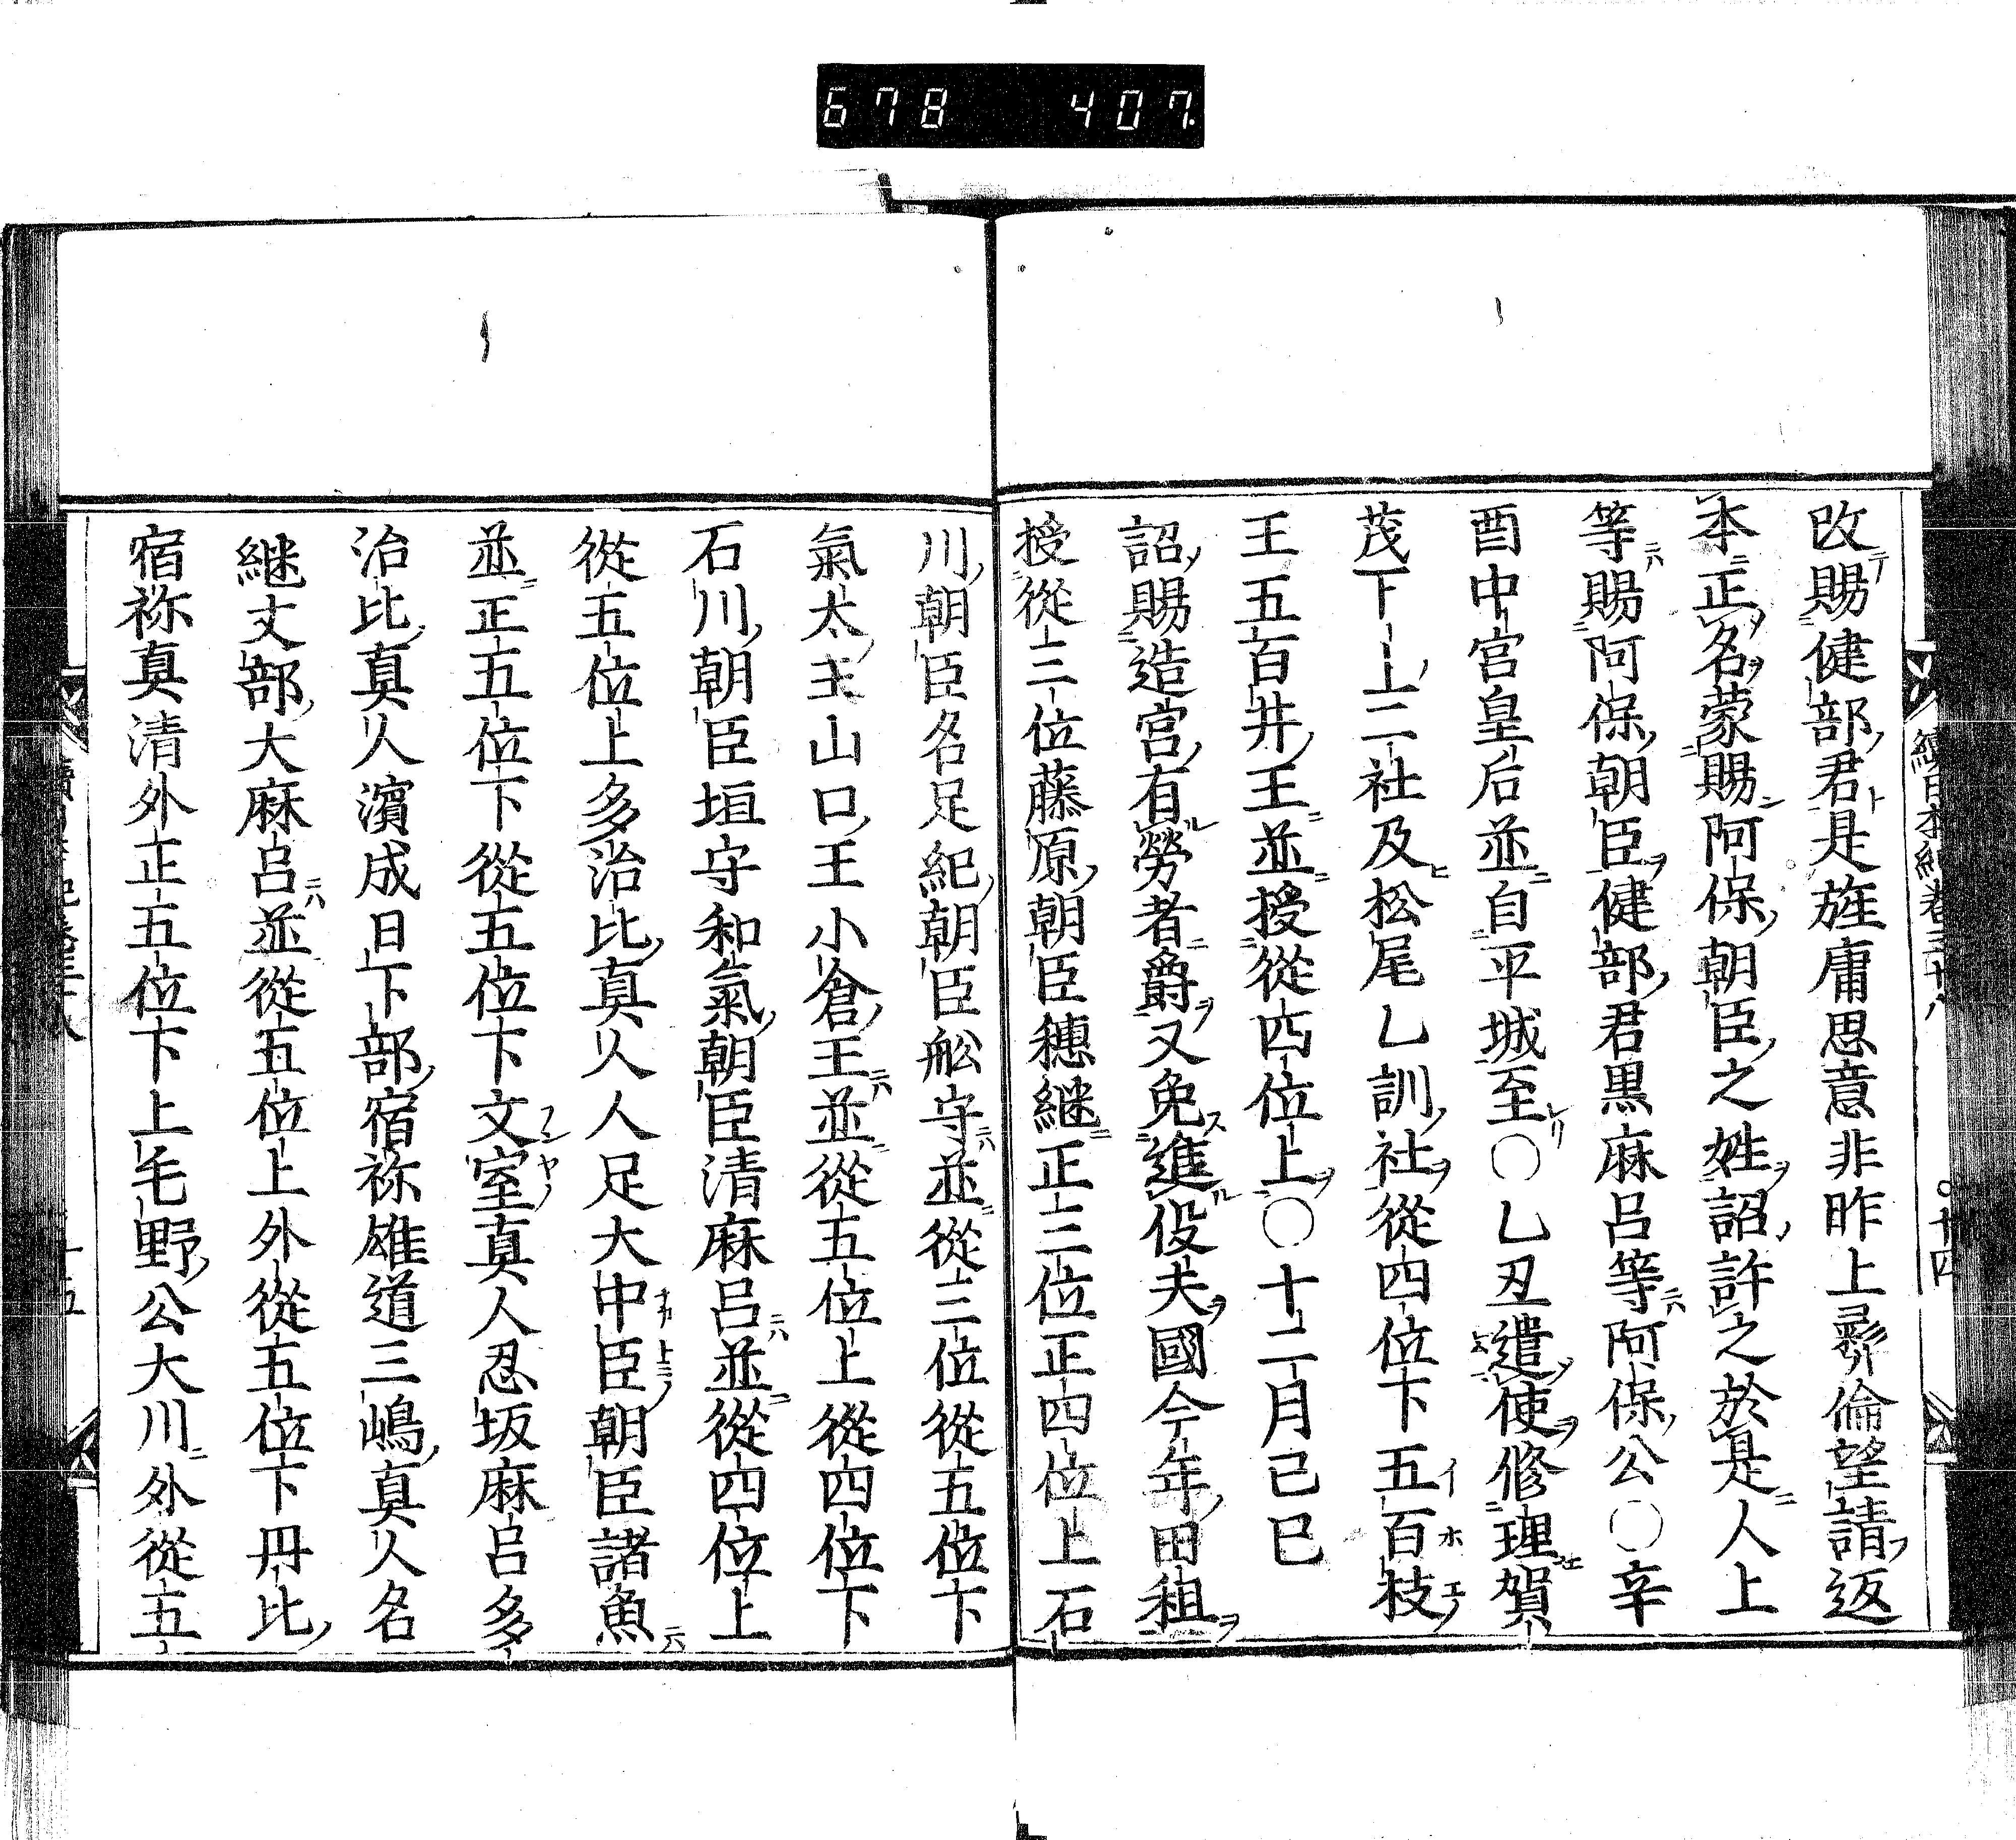 678 407.
續日本紀卷三十八 〇十四
改賜健部君是旌庸思意非昨土彛倫望請返
本正名蒙賜阿保朝臣之姓詔許之於是人上
等賜阿保朝臣健部君黒麻呂等阿保公〇辛
酉中宮皇后並自平城至〇乙丑遣使修理賀
茂下上二社及松尾乙訓社從四位下五百枝
王五百井王並授從四位上〇十二月己巳
詔賜造宮有勞者爵又免進役夫國今年田租
授從三位藤原朝臣穗継正三位正四位上石
川朝臣名足紀朝臣舩守並從三位從五位下
氣太王山口王小倉王並從五位上從四位下
石川朝臣垣守和氣朝臣清麻呂並從四位上
從五位上多治比真人人足大中臣朝臣諸魚
並正五位下從五位下文室真人忍坂麻呂多
治比真人濱成日下部宿祢雄道三嶋真人名
継丈部大麻呂並從五位上外從五位下丹比
宿祢真清外正五位下上毛野公大川外從五